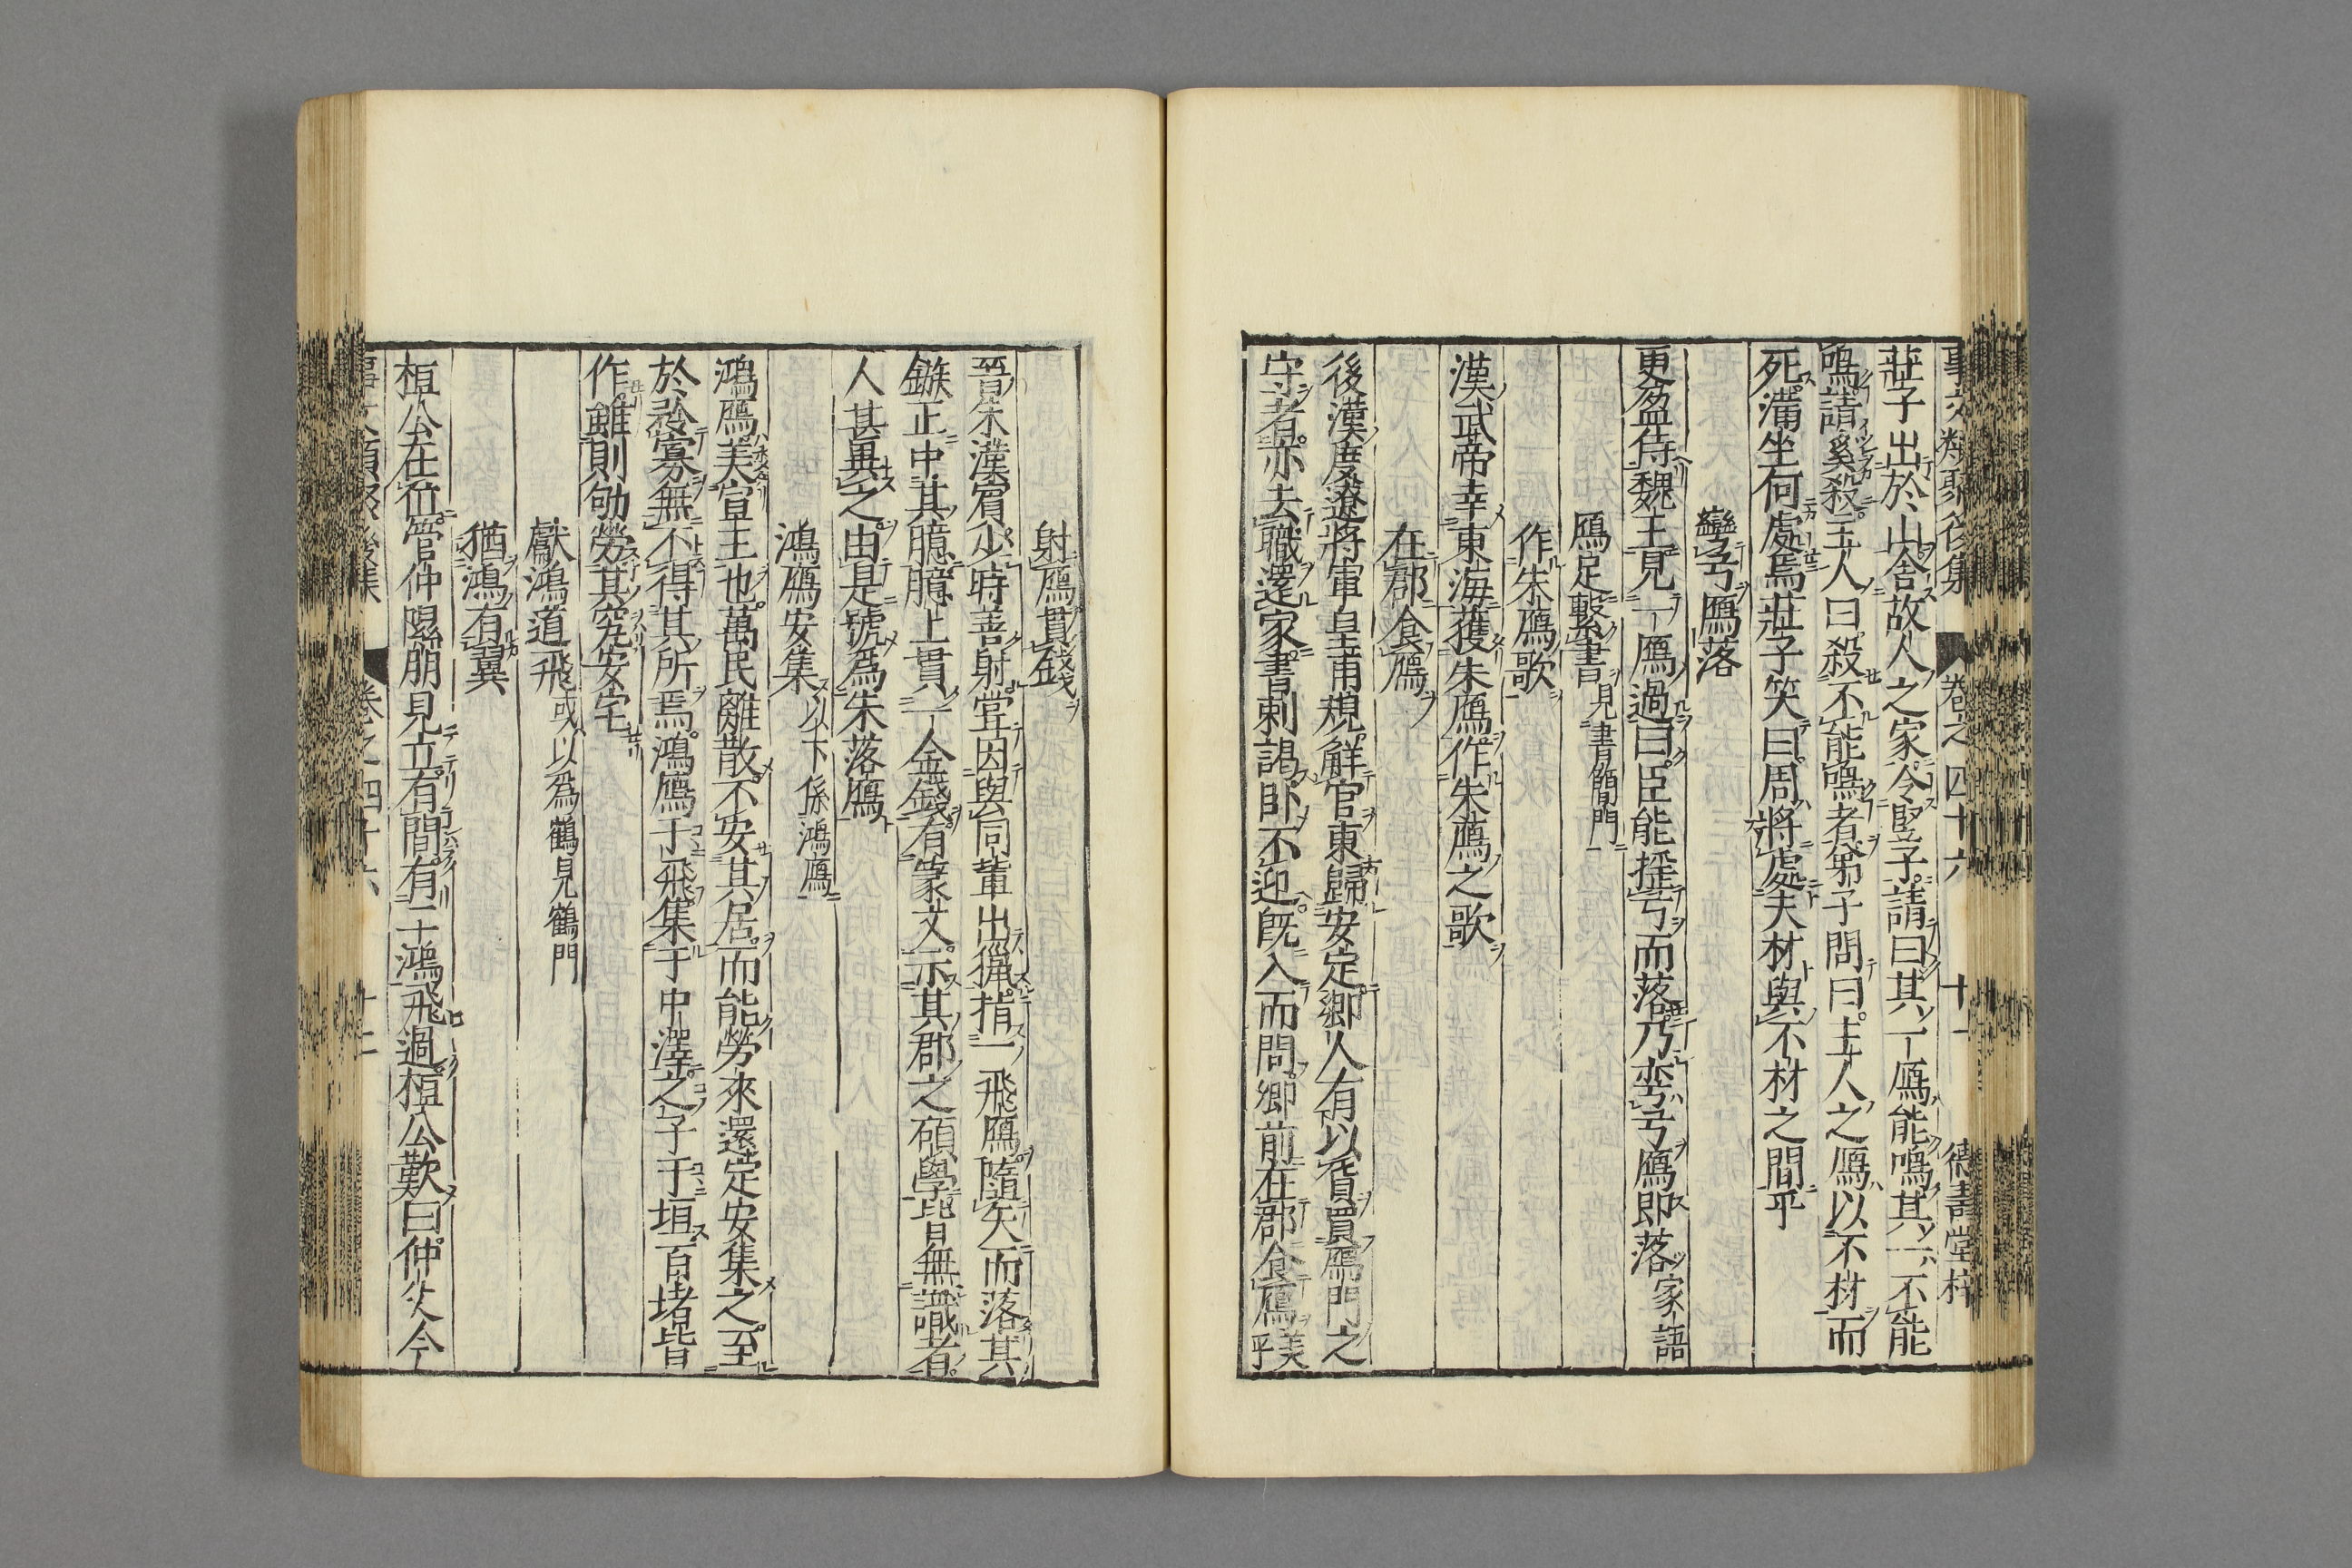 事文類聚後集 卷之四十六 十一 德壽堂梓
莊子出於山舍故人之家令堅子請曰其一鴈能鳴其一不能
鳴請奚殺主人曰殺不能鳴者弟子問曰主人之鴈以不材而
死溝坐何處焉莊子笑曰周將處夫材與不材之間乎
彎弓鴈落
更盈侍魏王見一鴈過曰臣能援弓而落乃彎弓鴈即落家語
鴈足繫書見書簡門
作朱鴈歌
漢武帝幸東海獲朱鴈作朱鴈之歌
在郡食鴈
後漢度遼將軍皇甫規觧官東歸安定鄉人有以貨買鴈門之
守者亦去職還家書刺謁卧不迎既入而問卿前在郡食鴈美乎
射鴈貫錢
晉朱漢賓少時善射嘗因與同輩出獵指一飛鴈隨矢而落其
鏃正中其臆臆上貫一金錢有篆文示其郡之碩學皆無識者
人甚異之由是號為朱落鴈
鴻鴈安集以下係鴻鴈
鴻鴈美宣王也萬民離散不安其居而能勞來還定安集之至
於矜寡無不得其所焉鴻鴈于飛集于中澤之子于垣百堵皆
作雖則劬勞其究安宅
獻鴻道飛或以為鶴見鶴門
猶鴻有翼
桓公在位管仲隰朋見立有間有二鴻飛過桓公歎曰仲父今
事文類聚後集 卷之四十六 十二